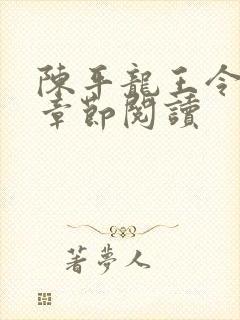 陳平龍王令
章節閱讀
著夢人